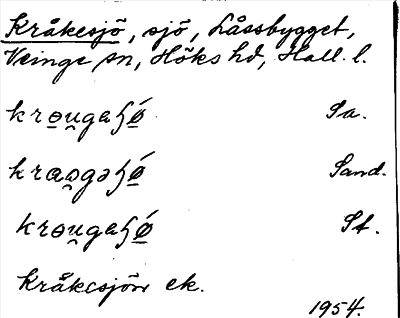 Kråkesjö, sjö, Låssbygget,
Veinge sn, Höks hd, Hall. l.
kro̯u̯gaɧǿ Sa.
krao̯gəɧǿ Sand.
kro̯u̯gaɧǿ St.
Kråkesjön ek.
1954.